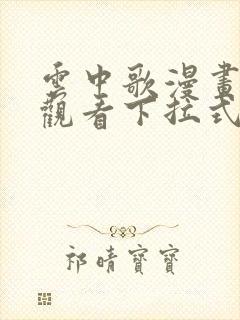 雲中歌漫畫
觀看下拉式
祁晴寶寶